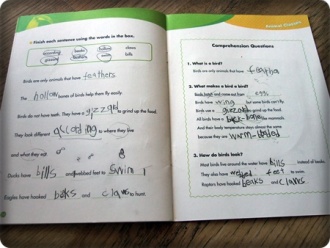 Finish each sentence using the words in the box.
according beaks hollow claws
gizzard feathers swim bills
Birds are only animals that have feathers
The hollow bones of birds help them fly easily.
Birds do not have teeth. They have a gizzard to grind up the food.
They look different according to where they live
and what they eat.
Ducks have bills and webbed feet to swim
Raptors have hooked beaks and claws to hunt.
Comprehension Questions
1. What is a bird?
Birds are only animals that have feathe
2. What makes a bird a bird?
Birds hatch and come out from eggs
Birds have wing but some birds can't fly.
Birds use a gizzard to grind up the food.
All birds have a back-bone
And their body temperature stays about the same
because they are warm-blooded
3. How do birds look?
Most birds live around the water have bills instead of beaks.
They also have webbed feet to swim.
Raptors have hooked beaks and claws.